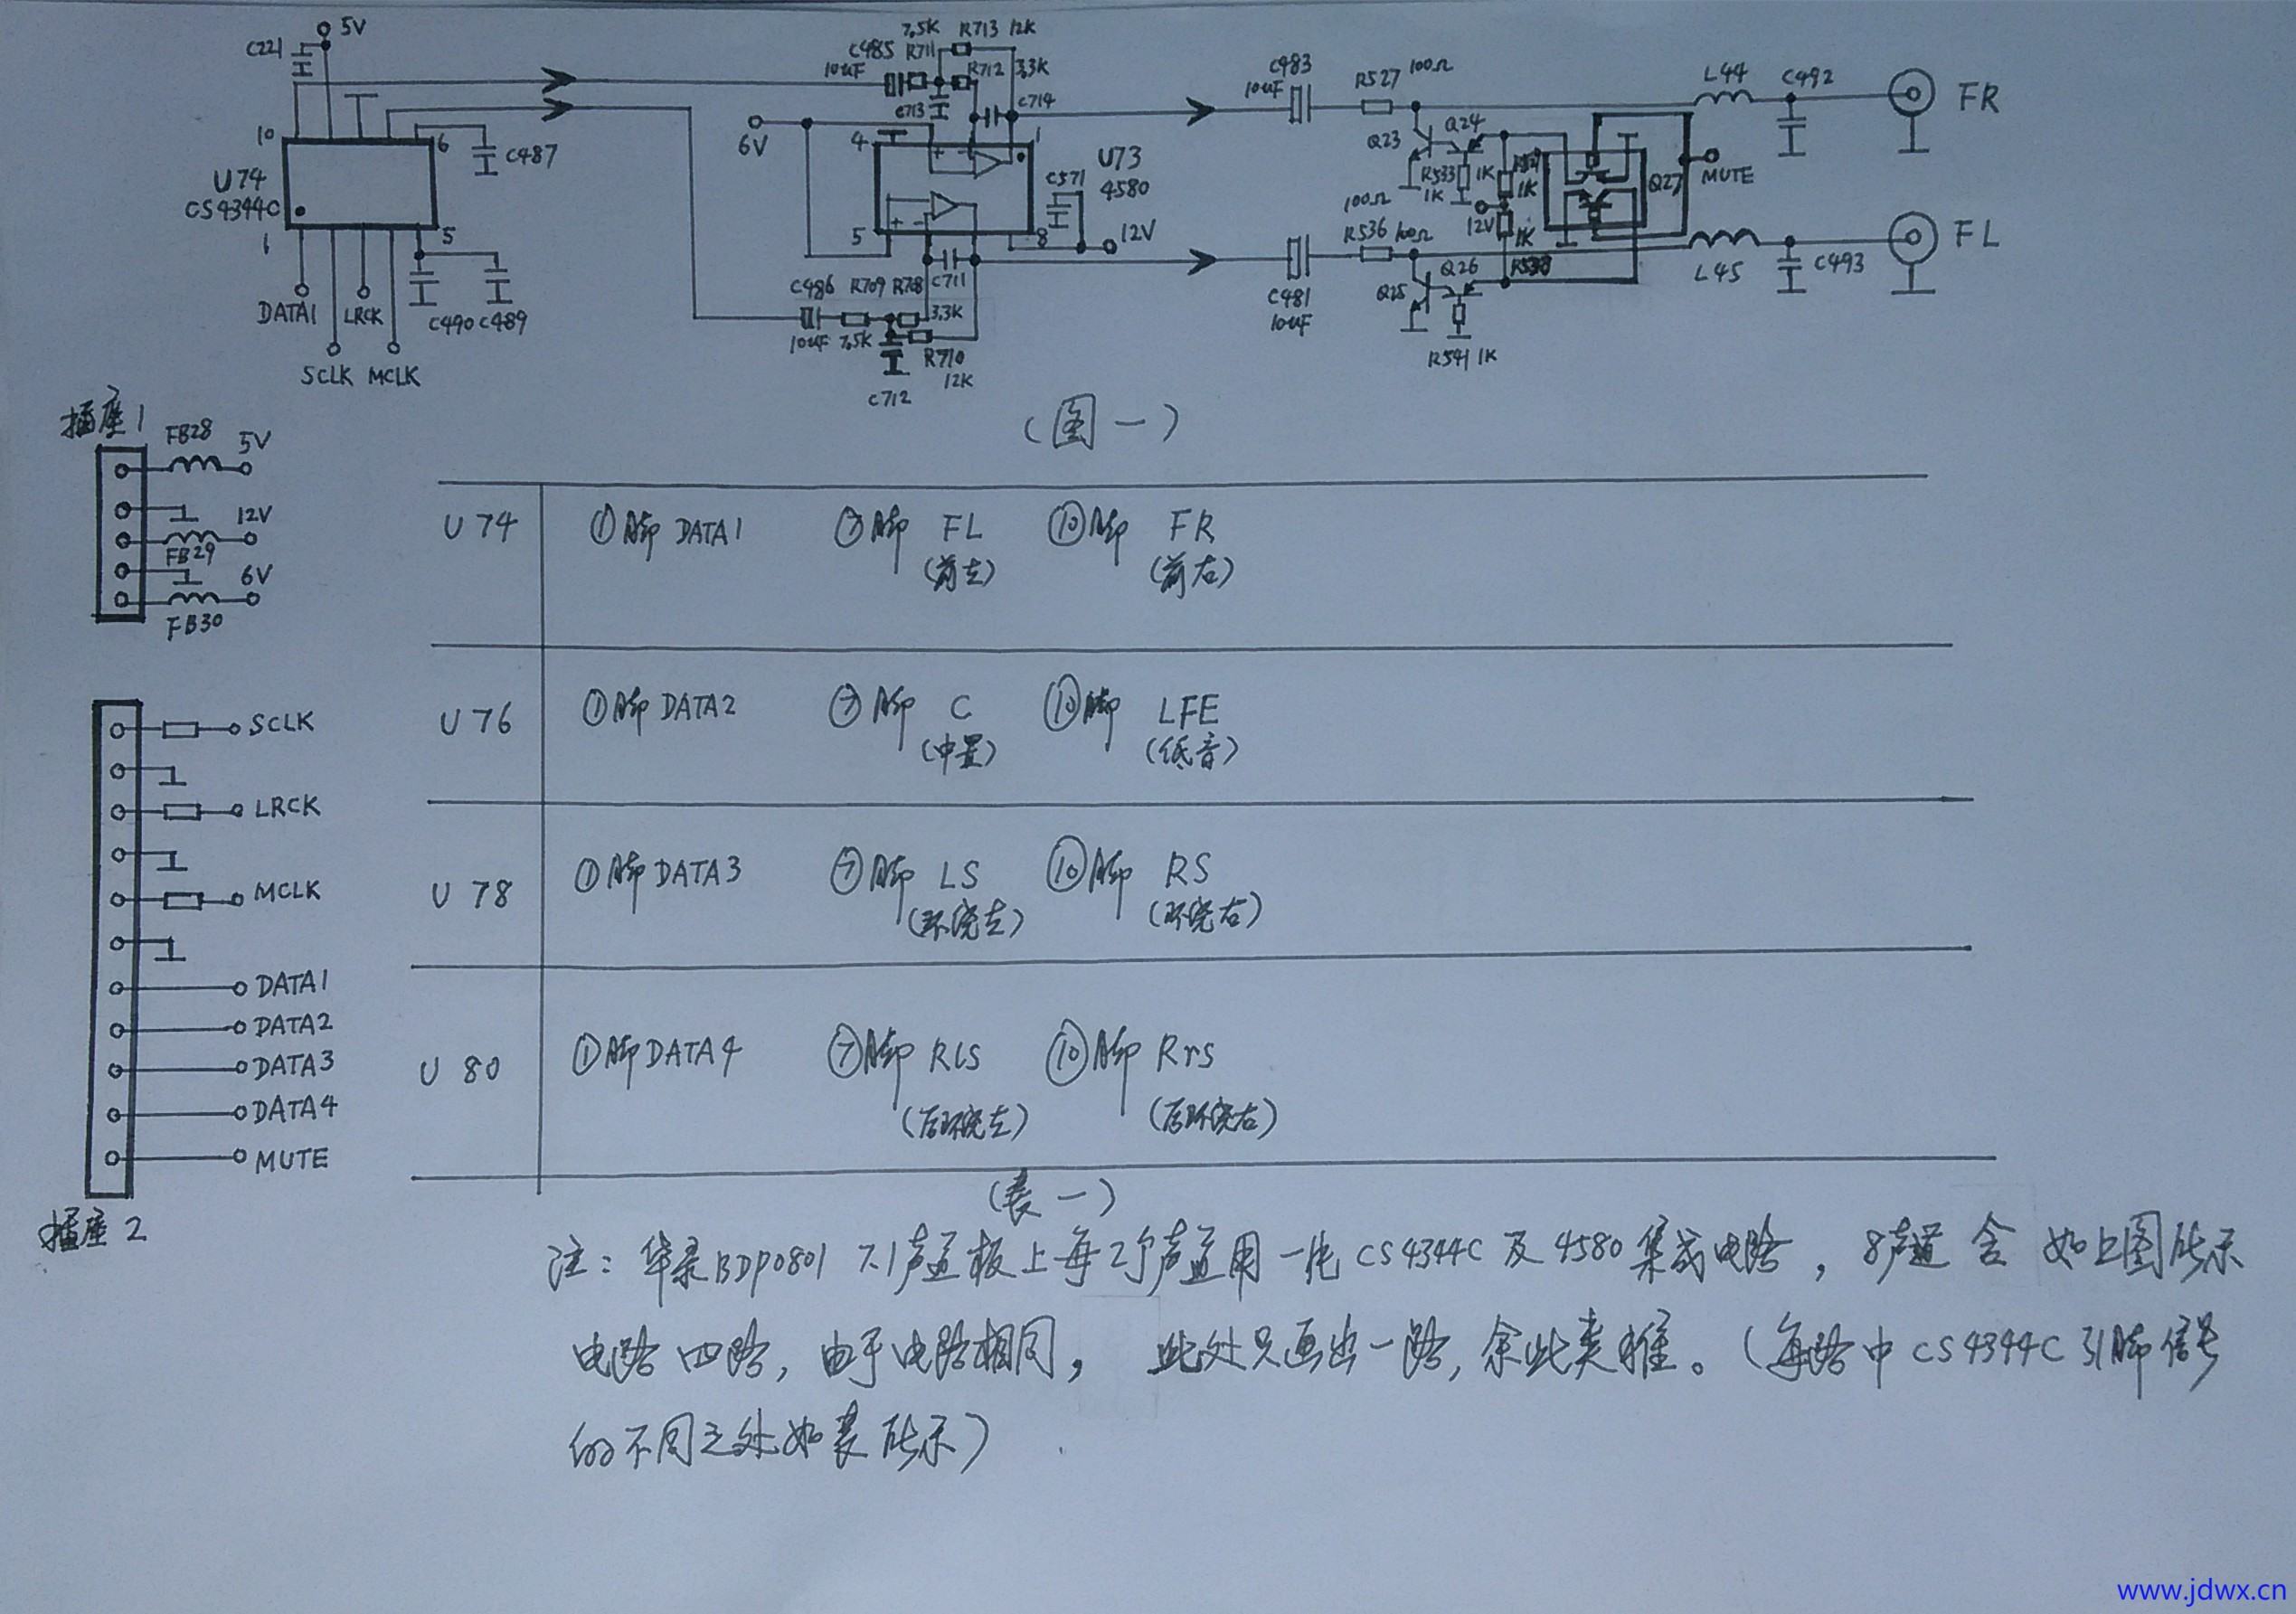 5V
C221
10
6
C487
U74
CS4344C
1
5
DATA1
LRCK
C490
C489
SCLK
MCLK
7.5K
R713
12K
C485
R711
10uF
R712
3.3K
C713
C714
6V
4
1
U73
4580
C571
5
8
12V
C486
R709
R708
C711
10uF
7.5K
3.3K
R710
12K
C712
C483
10uF
R527
100Ω
Q23
Q24
R533
1K
1K
1K
12V
1K
100Ω
R536
Q27
MUTE
Q25
Q26
R541
1K
C481
10uF
L44
C492
FR
L45
C493
FL
(图一)
插座1
FB28
5V
12V
FB29
6V
FB30
U74 ①脚 DATA1 ⑦脚 FL ⑩脚 FR
(前左) (前右)
U76 ①脚 DATA2 ⑦脚 C ⑩脚 LFE
(中置) (低音)
U78 ①脚 DATA3 ⑦脚 LS ⑩脚 RS
(环绕左) (环绕右)
U80 ①脚 DATA4 ⑦脚 RLS ⑩脚 Rrs
(后环绕左) (后环绕右)
(表一)
SCLK
LRCK
MCLK
DATA1
DATA2
DATA3
DATA4
MUTE
插座2
注：华录BDP0801 7.1声道板上每2个声道用一片CS4344C及4580集成电路，8声道含如上图所示
电路四路，由于电路相同，此处只画出一路，余此类推。(每路中CS4344C引脚信号
的不同之处如表所示)
www.jdwx.cn